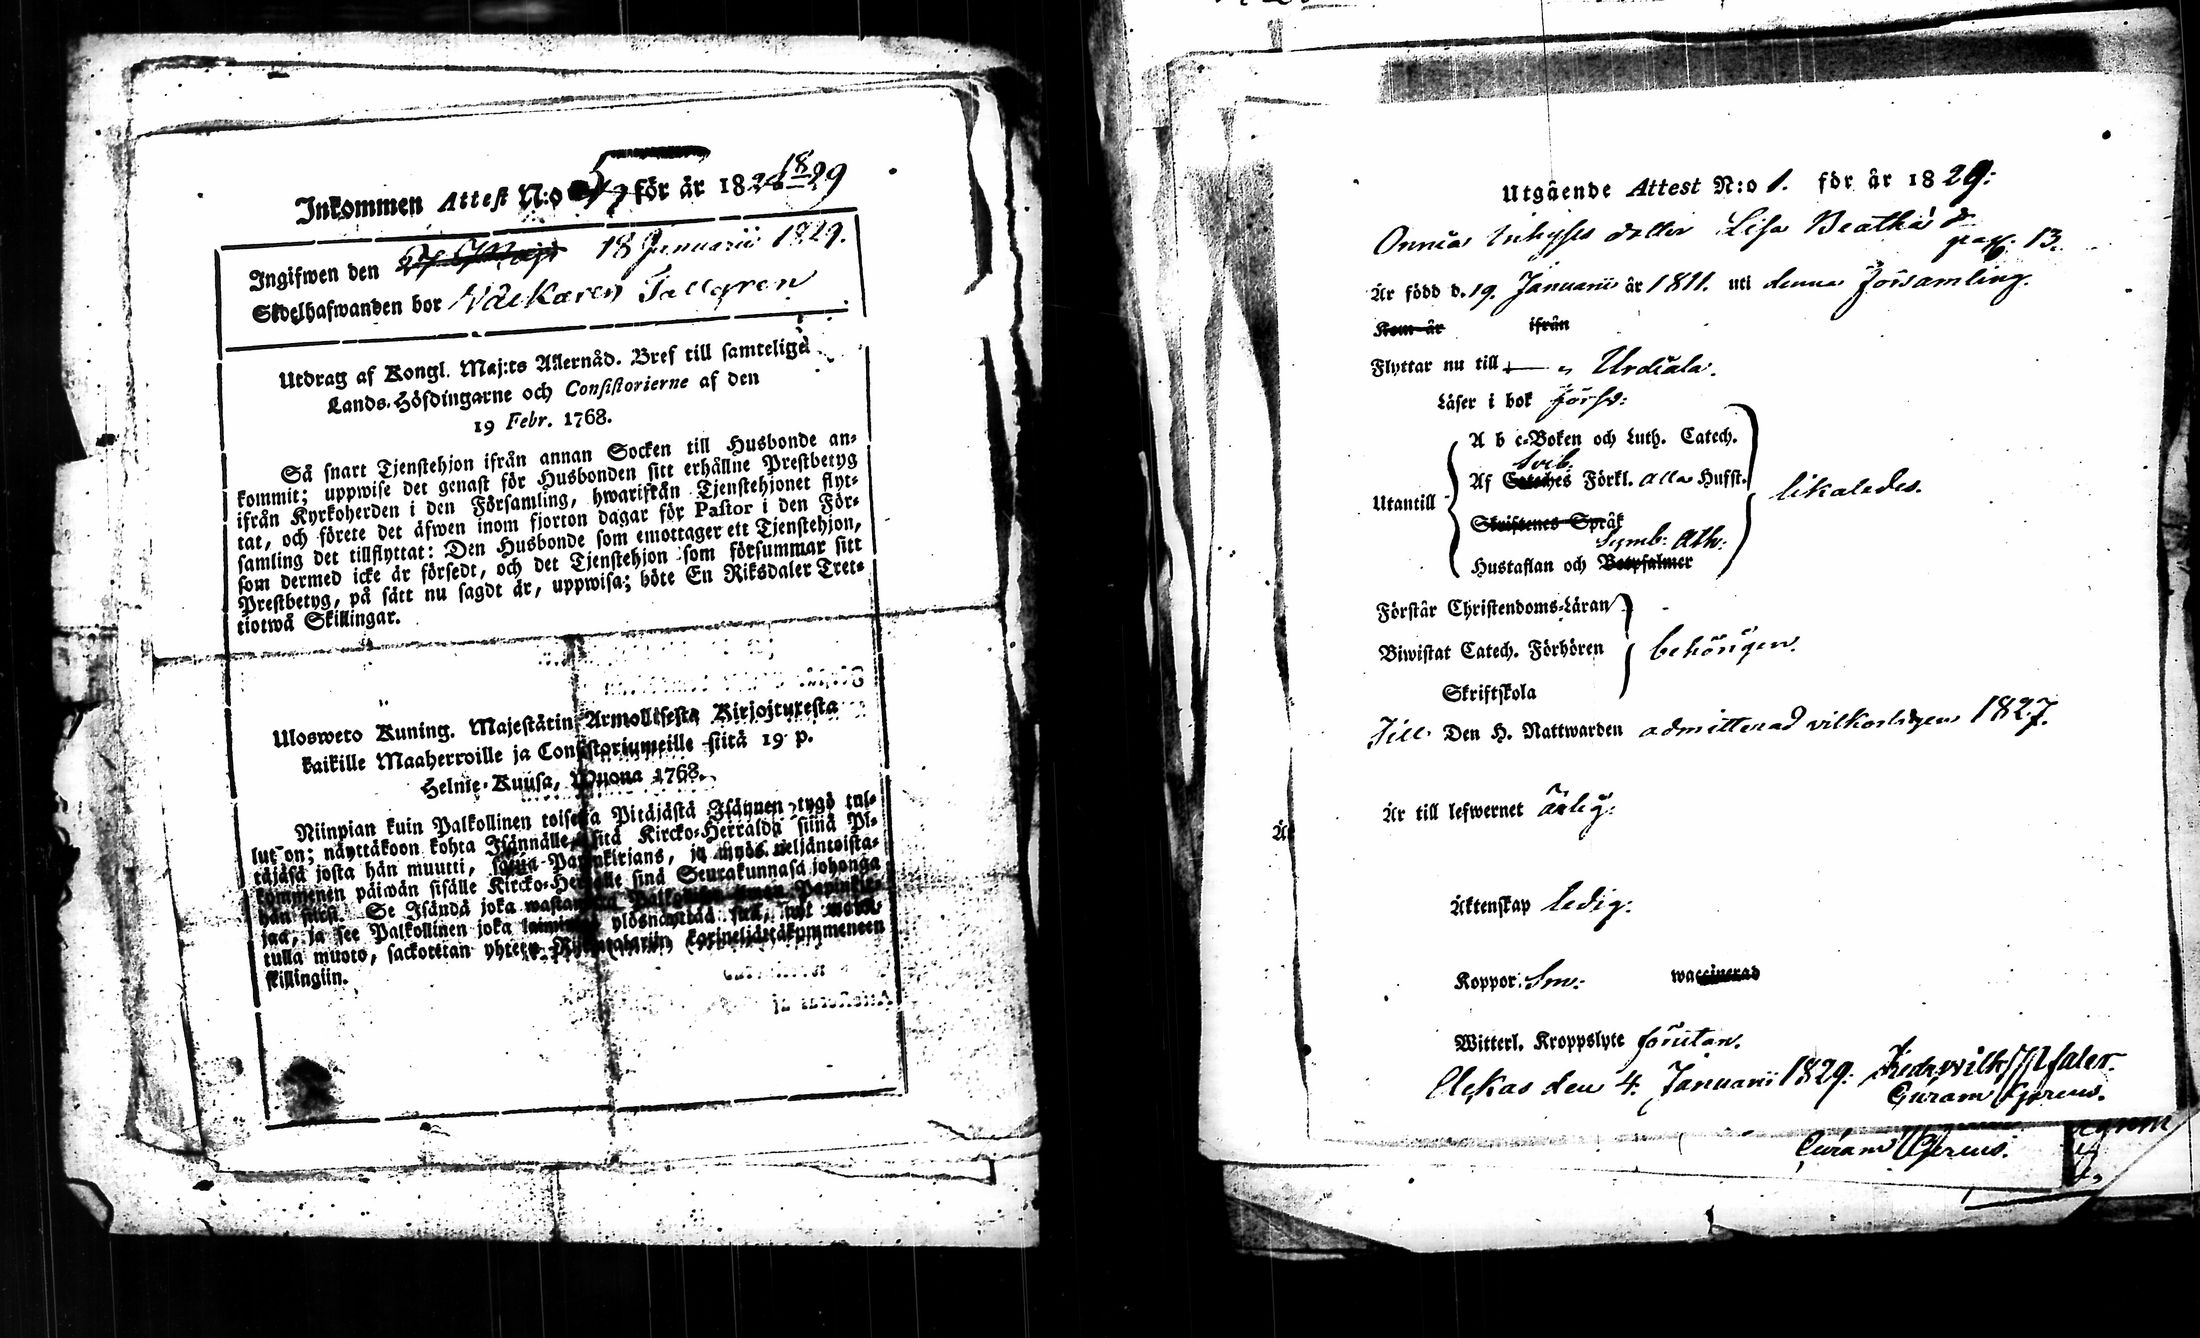 Inkommen Attest N:o 5 för år 1829
Ingifwen den 27 Maji 18 Januarii 1829.
Skoelhafwanden bor Näckaren Tallgren
Utdrag af Kongl. Maj:ts Allernåd. Bref till samtelige
Lands-Höfdingarne och Consistorierne af den
19 Febr. 1768.
Så snart Tjenstehjon ifrån annan Socken till Husbonde an-
kommit; uppwise det genast för Husbonden sitt erhållne Prestbetyg
ifrån Kyrkoherden i den Församling, hwarifrån Tjenstehjonet flyt-
tat, och förete det äfwen inom fjorton dagar för Pastor i den För-
samling det tillflyttat: Den Husbonde som emottager ett Tjenstehjon,
som dermed icke är försedt, och det Tjenstehjon som försummar sitt
Prestbetyg, på sätt nu sagdt är, uppwisa; böte En Riksdaler Tret-
tiotwå Skillingar.
Ulosweto Kuning. Majestätin Armollisesta Kirjoituxesta
kaikille Maaherroille ja Consistoriumeille siitä 19 p.
Helmi-Kuusa, Wuona 1768.
Niinpian kuin Palkollinen toisesta Pitäjästä Isännen tygö tul-
lut on; näyttäkoon kohta Isännälle sitä Kircko-Herralda siinä Pi-
täjäsä josta hän muutti, Papinkirjans, ja myös neljäntoista-
kymmenen päiwän sisälle Kircko-Herralle sinä Seurakunnasa johonga
hän siirsi. Se Isändä joka wastanotta Palkollisen ilman Papinkir-
jaa, ja see Palkollinen joka laiminlyö ylösnäyttää sen,
tulla muoto, sackotetan yhteen Rijkintalariin kaxineljättäkymmeneen
skillingiin.
Utgående Attest N:o 1. för år 1829:
dotter Lisa Beatha
pag: 13.
Är född d. 19. Januarii år 1811. uti denna församling.
Kom år ifrån
Flyttar nu till Urdiala.
Läser i bok förs:
A b c-Boken och Luth. Catech.
Svib:
Af Catechés Förkl. alla Husst.
Utantill likaledes.
Skriftenes Språk
Symb: Ath:
Hustaflan och Botpsalmer
Förstår Christendoms-Läran
Biwistat Catech. Förhören behörigen.
Skriftskola
Till Den H. Nattwarden admitterad vilkorligen 1827.
Är till lefwernet ärlig:
Äktenskap ledig:
Koppor waccinerad
Witterl. Kroppslyte förutan.
den 4. Januarii 1829.